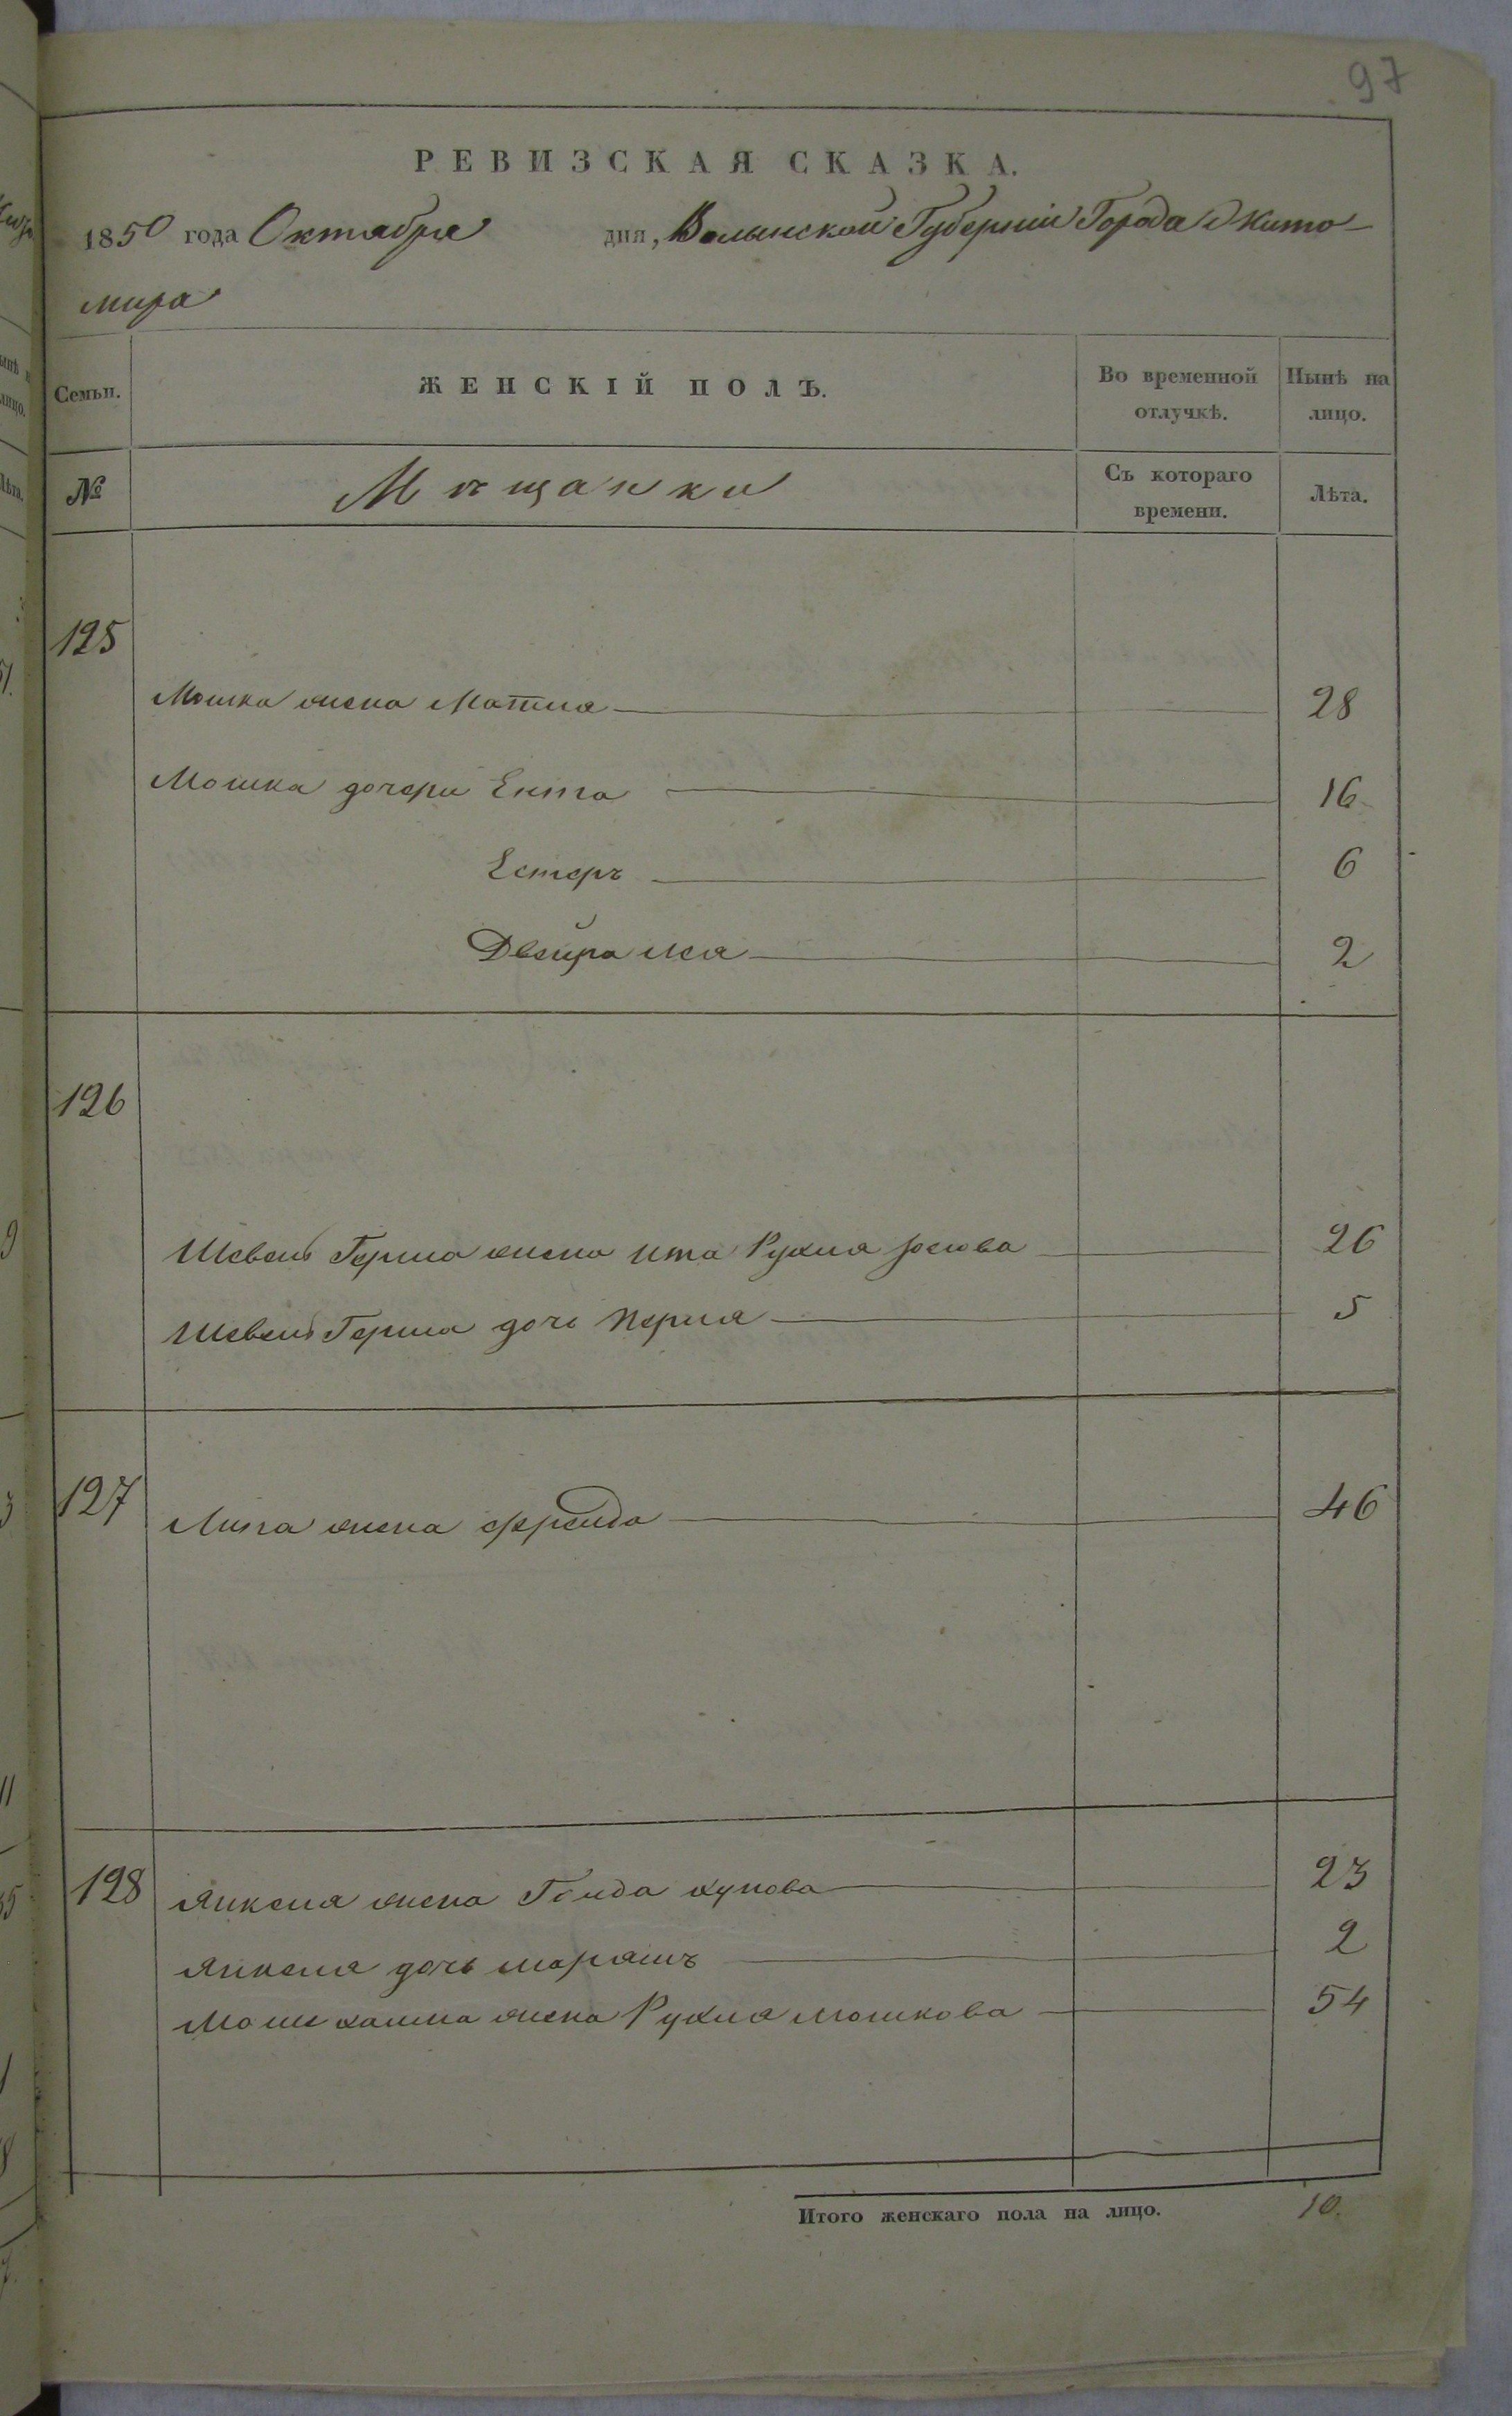 97
РЕВИЗСКАЯ СКАЗКА.
1850 года Октября дня, Волынской Губерніи Города Жито-
мира
Семьи. ЖЕНСКІЙ ПОЛЪ. Во временной отлучкѣ. Нынѣ на лицо.
№ Мѣщанки Съ котораго времени. Лѣта.
125
Мошка жена Матля 28
Мошка дочери Ента 16
Естеръ 6
Двейра Лея 2
126
Герша жена Ита Рухля 26
Герша дочь Перля 5
127 жена Фрейда 46
128 Янкеля жена 23
Янкеля дочь 2
жена Рухля Мошкова 54
Итого женскаго пола на лицо. 10.